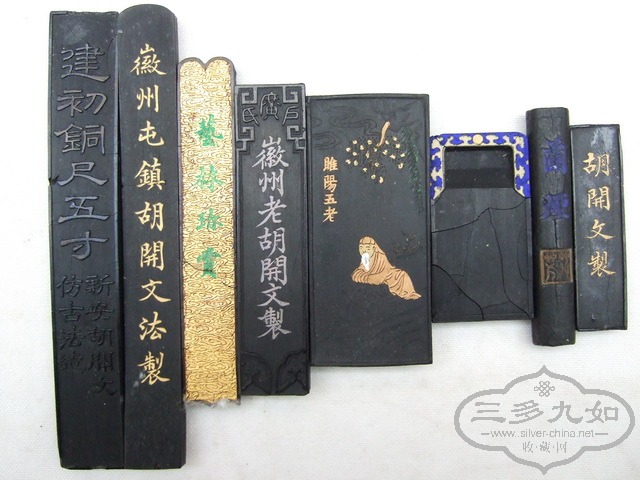 建初銅尺五寸
新安胡開文
仿古法
徽州屯鎮胡開文法製
藝
徽州老胡開文製
睢陽五老
胡開文製
三多九如
www.silver-china.net
收·藏·网